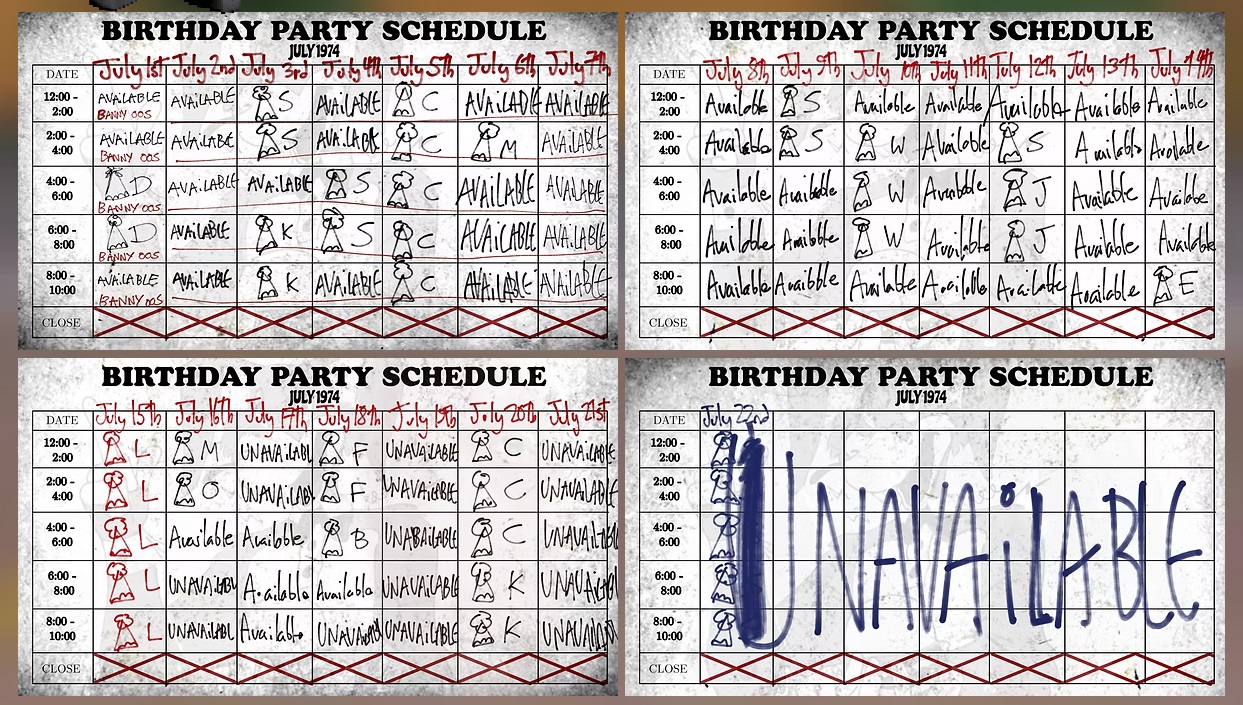 BIRTHDAY PARTY SCHEDULE
JULY 1974
DATE July 1st July 2nd July 3rd July 4th July 5th July 6th July 7th
12:00 - 2:00 AVAILABLE BANNY OOS AVAILABLE S AVAILABLE C AVAILABLE AVAILABLE
2:00 - 4:00 AVAILABLE BANNY OOS AVAILABLE S AVAILABLE C M AVAILABLE
4:00 - 6:00 D BANNY OOS AVAILABLE AVAILABLE S C AVAILABLE AVAILABLE
6:00 - 8:00 D BANNY OOS AVAILABLE K S C AVAILABLE AVAILABLE
8:00 - 10:00 AVAILABLE BANNY OOS AVAILABLE K AVAILABLE C AVAILABLE AVAILABLE
CLOSE
BIRTHDAY PARTY SCHEDULE
JULY 1974
DATE July 8th July 9th July 10th July 11th July 12th July 13th July 14th
12:00 - 2:00 Available S Available Available Available Available Available
2:00 - 4:00 Available S W Available S Available Available
4:00 - 6:00 Available Available W Available J Available Available
6:00 - 8:00 Available Available W Available J Available Available
8:00 - 10:00 Available Available Available Available Available Available E
CLOSE
BIRTHDAY PARTY SCHEDULE
JULY 1974
DATE July 15th July 16th July 17th July 18th July 19th July 20th July 21st
12:00 - 2:00 L M UNAVAILABL F UNAVAILABLE C UNAVAILABLE
2:00 - 4:00 L O UNAVAILABL F UNAVAILABLE C UNAVAILABLE
4:00 - 6:00 L Available Available B UNABAILABLE C UNAVAILABLE
6:00 - 8:00 L UNAVAILABL Available Available UNAVAILABLE K UNAVAILABL
8:00 - 10:00 L UNAVAILABL Available UNAVAILABL UNAVAILABLE K UNAVAILABL
CLOSE
BIRTHDAY PARTY SCHEDULE
JULY 1974
DATE July 22nd
12:00 - 2:00
2:00 - 4:00
UNAVAiLABLE
4:00 - 6:00
6:00 - 8:00
8:00 - 10:00
CLOSE